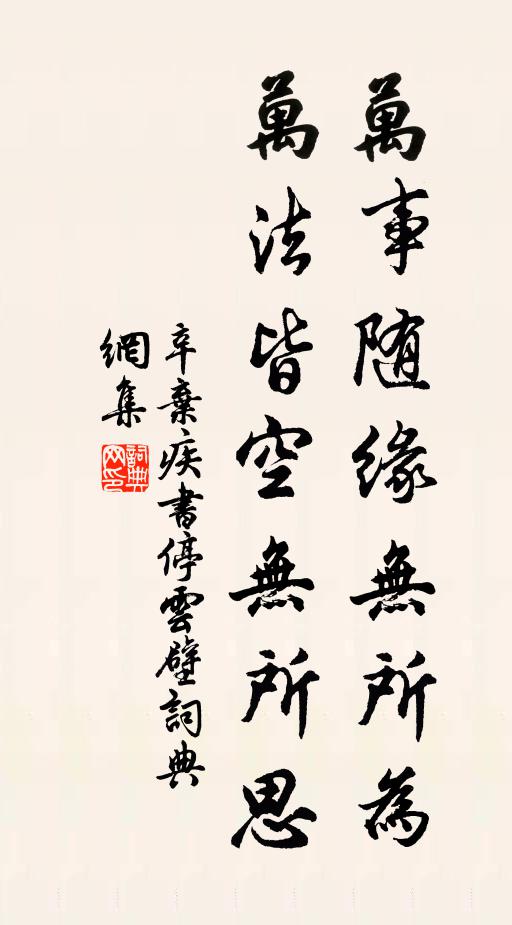 萬事随緣無所為
萬法皆空無所思
辛棄疾書停雲壁詞典
網集
詞典
网印